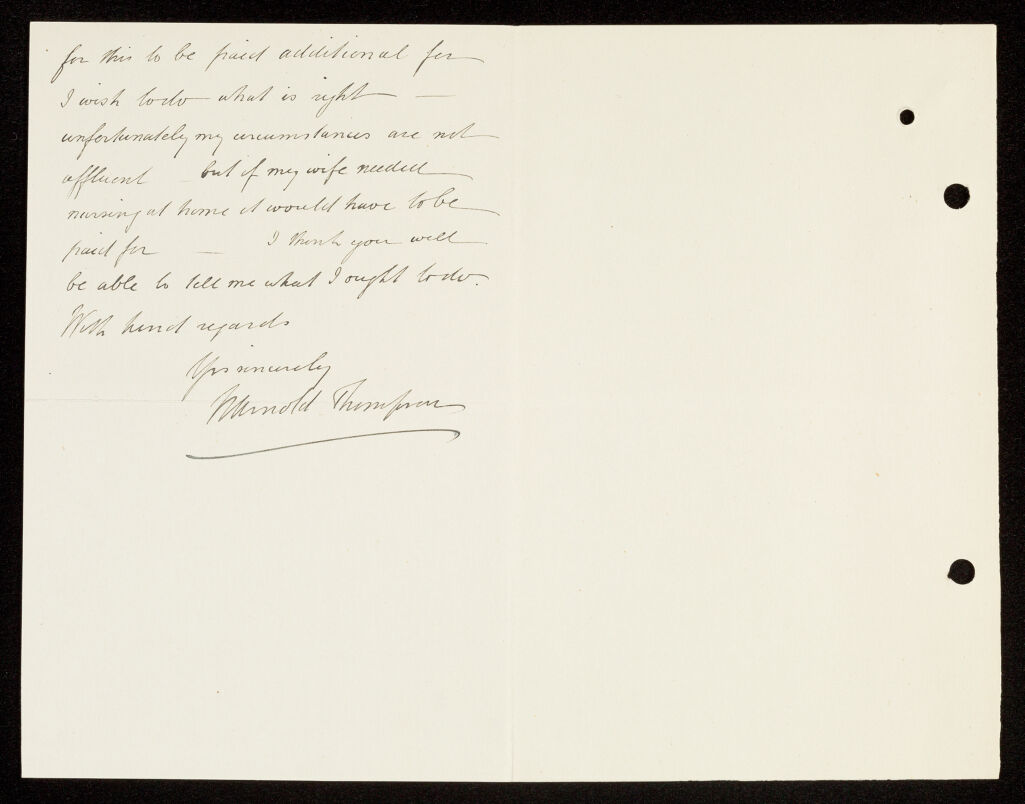 for this to be paid additional for
I wish to do what is right —
unfortunately my circumstances are not
affluent – but if my wife needed
nursing at home it would have to be
paid for — I think you will
be able to tell me what I ought to do.
With kind regards
Yrs sincerely
Arnold Thompson